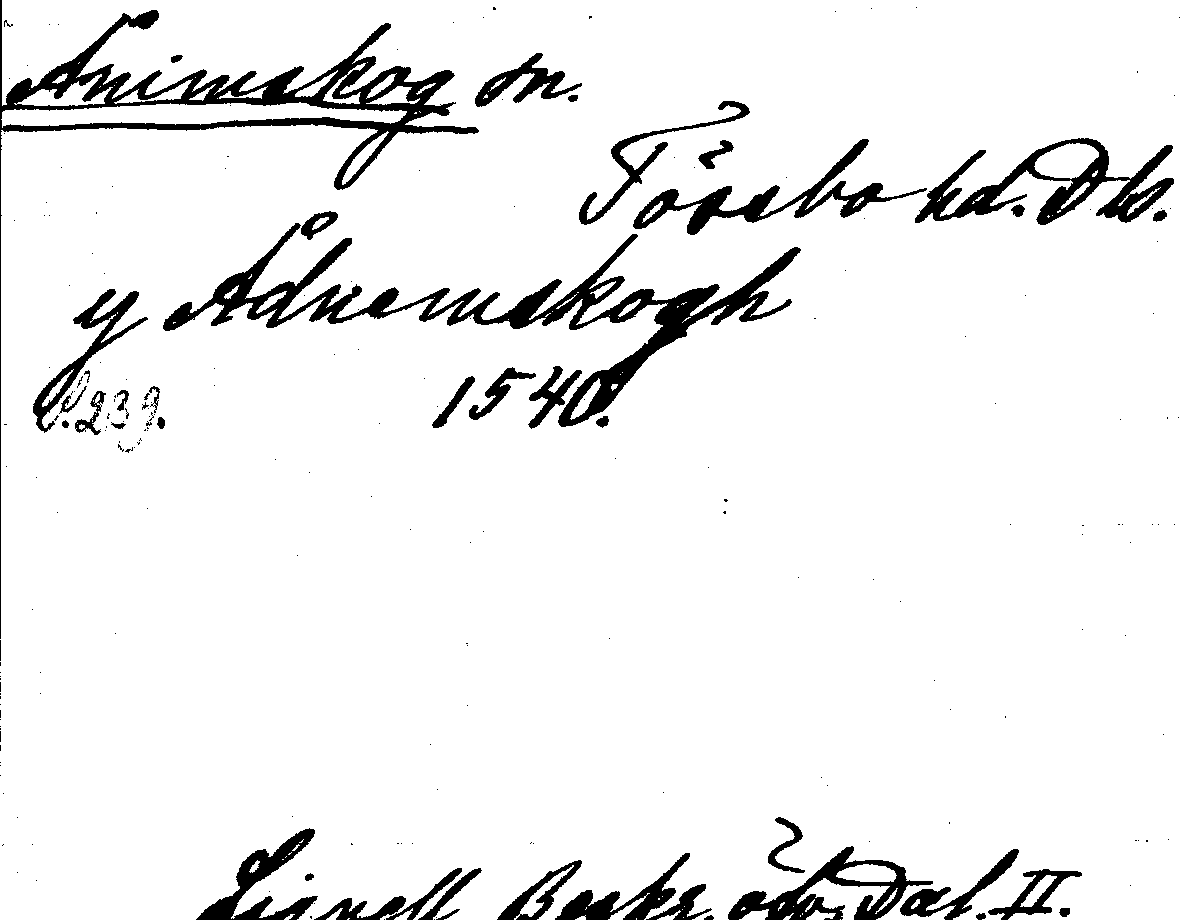 Ånimskog sn.
Tössbo hd. Dls.
y Ådnemskogh
S. 239. 1540.
Lignell Beskr. öfv. Dal. II.